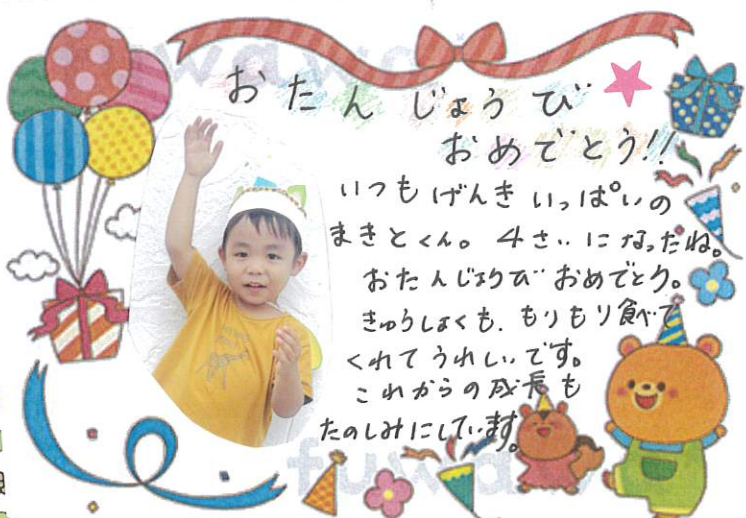 おたんじょうび
おめでとう!!
いつもげんきいっぱいの
まきとくん。4さいになったね。
おたんじょうびおめでとう。
きゅうしょくも、もりもり食べて
くれてうれしいです。
これからの成長も
たのしみにしています。
fuwa